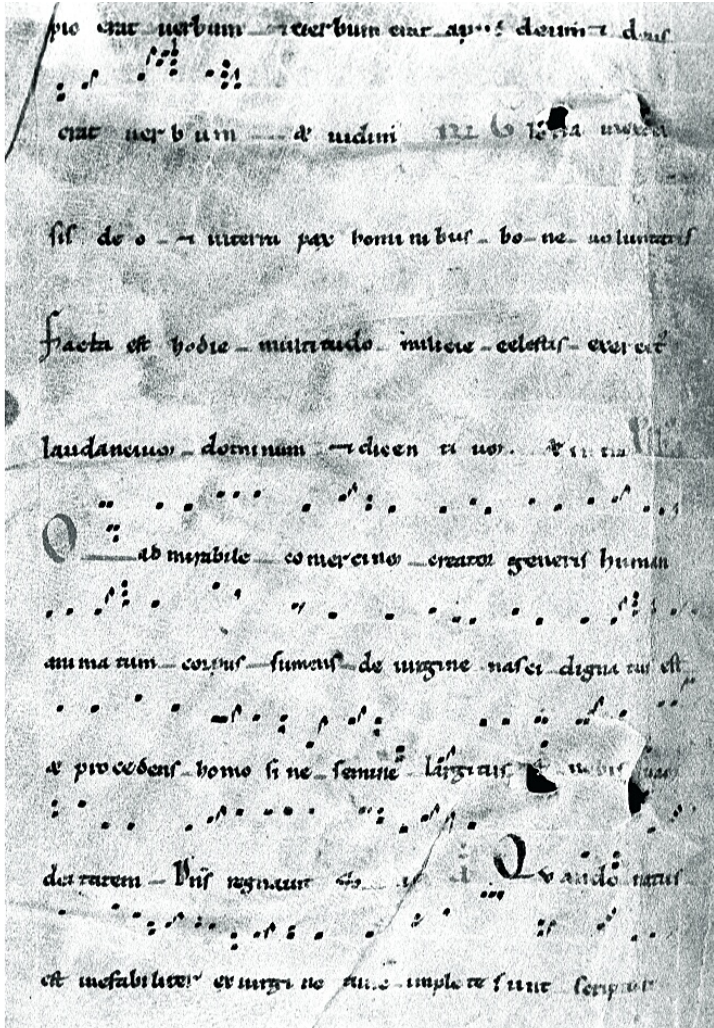 pio erat uerbum & uerbum erat apud deum & deus
erat uerbum & uidim
sis deo & interra pax hominibus bone uoluntatis
Facta est hodie multitudo milicie celestis exercit
laudanciuor dominum & dicen ti uor.
O ad mirabile comerciuor creator generis human
animatum corpus sumens de uirgine nasci dignatus est
& procedens homo sine semine largitus nobis
deitatem Quando natus
est inefabiliter exuirgine implete sunt scriptur